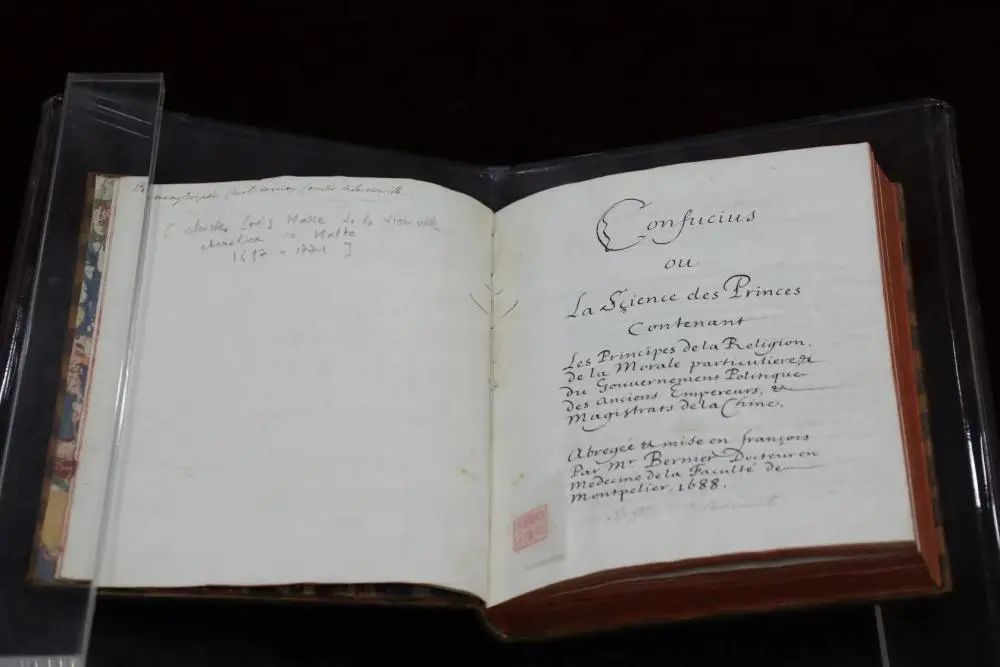 [ Charles Louis Marie de la Vieuville
chevalier de Malte
1697 - 1771 ]
Confucius
ou
La Sçience des Princes
Contenant
Les Principes de la Religion,
de la Morale particuliere &
du Gouvernement Politique
des anciens Empereurs, &
Magistrats de la Chine.
Abregée & mise en françois
Par Mr. Bernier Docteur en
Medecine de la Faculté de
Montpelier. 1688.